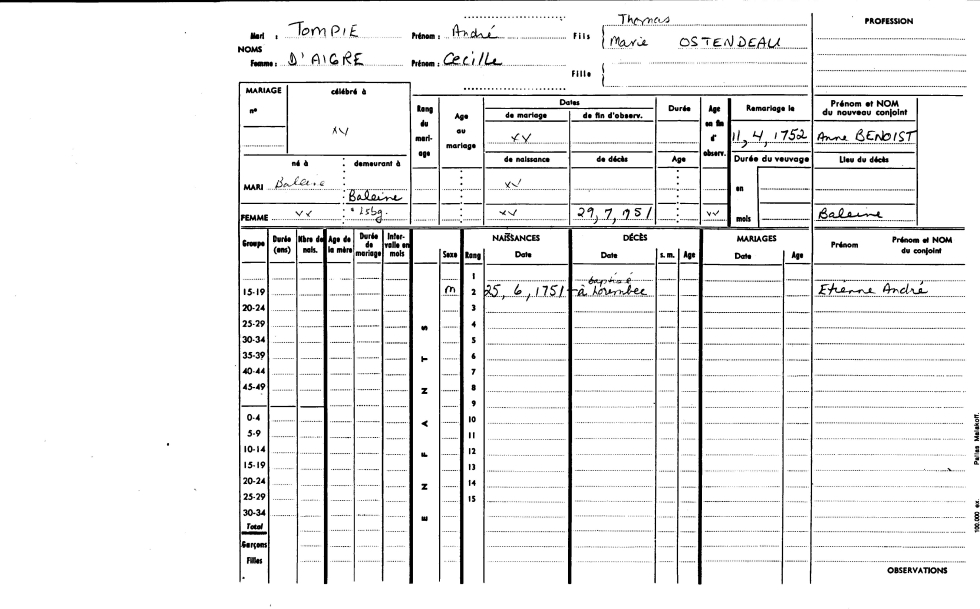 Mari : TOMPIE Prénom : André Fils Thomas PROFESSION
Marie OSTENDEAU
NOMS
Femme : D'AIGRE Prénom : Cecille
Fille
MARIAGE célébré à
n° xv
Rang du mari- age
Age au mariage
Dates
de mariage de fin d'observ.
xv
Durée
Age en fin d' observ.
Remariage le
11, 4, 1752
Prénom et NOM du nouveau conjoint
Anne BENOIST
né à demeurant à
de naissance de décès Age Durée du veuvage Lieu du décès
MARI Baleine Baleine xv en
FEMME xv * Lsbg. xv 29, 7, 1751 xv mois Baleine
Groupe Durée (ans) Nbre de nais. Age de la mère Durée de mariage Inter- valle en mois
ENFANTS
Sexe Rang
NAISSANCES
Date
DÉCÈS
Date s. m. Age
MARIAGES
Date Age
Prénom Prénom et NOM du conjoint
1
baptisé
15-19 m 2 25, 6, 1751 à Lorembec Etienne André
20-24 3
25-29 4
30-34 5
35-39 6
40-44 7
45-49 8
9
0-4 10
5-9 11
10-14 12
15-19 13
20-24 14
25-29 15
30-34
Total
Garçons
Filles
OBSERVATIONS
100.000 ex. Paillex Malakoff.